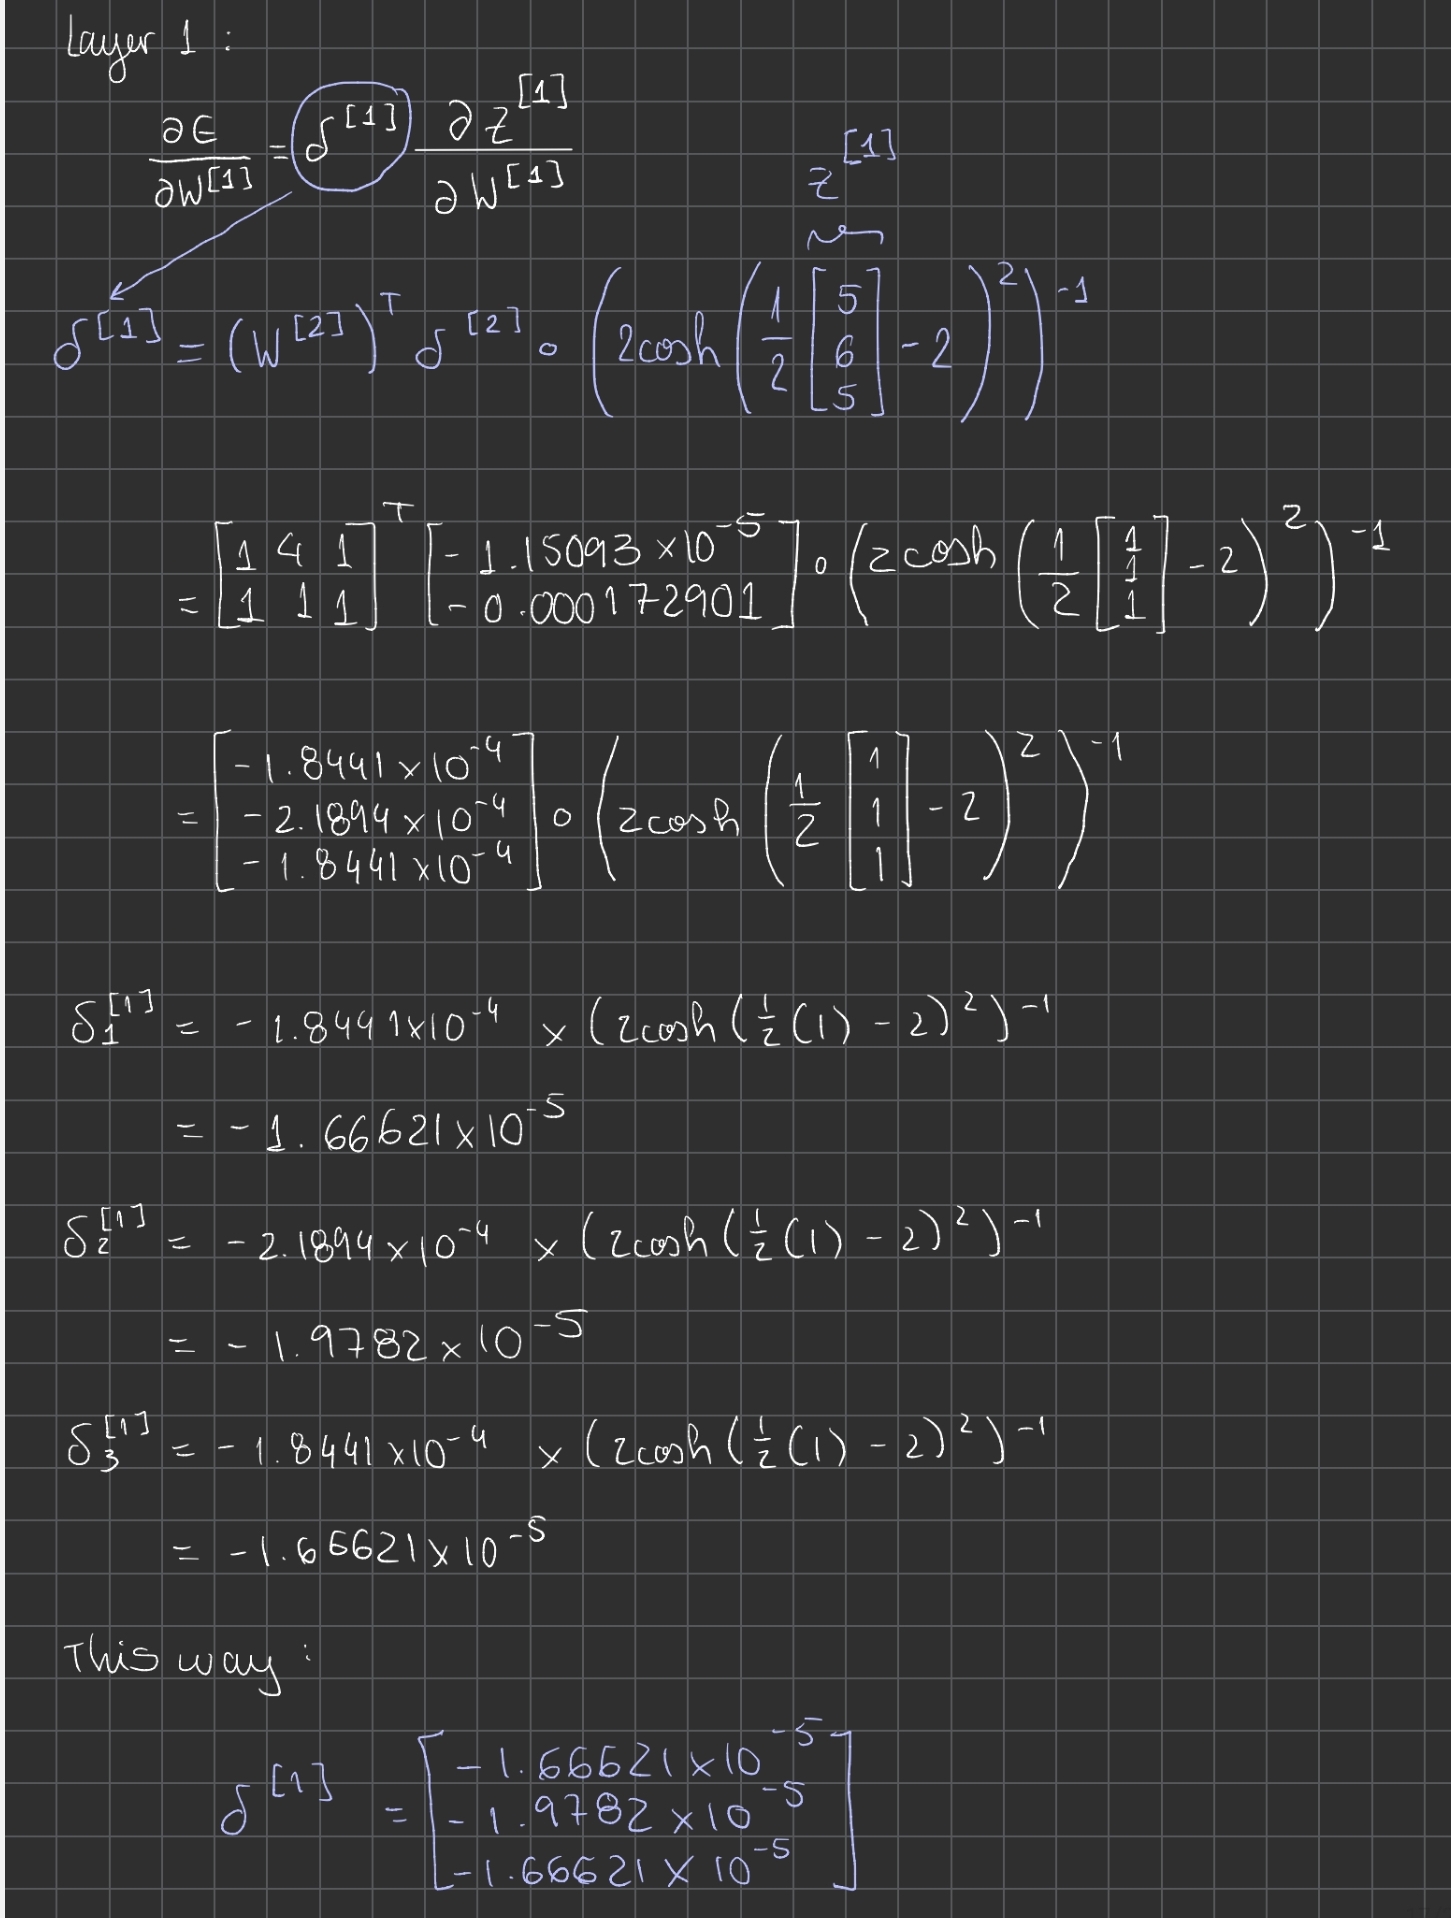 Layer 1 :
∂E/∂W^[1] = δ^[1] ∂z^[1]/∂W^[1]
z^[1]
δ^[1] = (W^[2])^T δ^[2] ∘ (2cosh(1/2 [5 6 5] - 2)^2)^-1
= [1 4 1; 1 1 1]^T [-1.15093 × 10^-5; -0.000172901] ∘ (2cosh(1/2 [1 1 1] - 2)^2)^-1
= [-1.8441 × 10^-4; -2.1894 × 10^-4; -1.8441 × 10^-4] ∘ (2cosh(1/2 [1 1 1] - 2)^2)^-1
δ_1^[1] = -1.8441 × 10^-4 × (2cosh(1/2 (1) - 2)^2)^-1
= -1.66621 × 10^-5
δ_2^[1] = -2.1894 × 10^-4 × (2cosh(1/2 (1) - 2)^2)^-1
= -1.9782 × 10^-5
δ_3^[1] = -1.8441 × 10^-4 × (2cosh(1/2 (1) - 2)^2)^-1
= -1.66621 × 10^-5
This way :
δ^[1] = [-1.66621 × 10^-5; -1.9782 × 10^-5; -1.66621 × 10^-5]